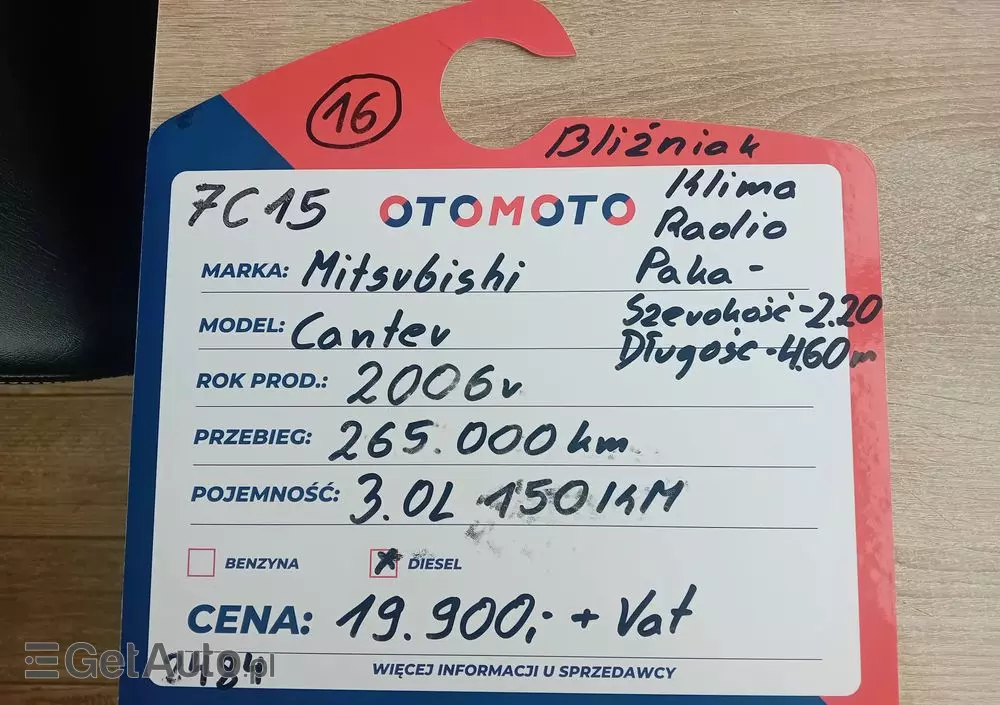 16
Bliźniak
7C15
OTOMOTO
Klima
Radio
Paka -
Szerokość - 2.20
Długość - 4,60m
MARKA: Mitsubishi
MODEL: Canter
ROK PROD.: 2006r
PRZEBIEG: 265.000 km
POJEMNOŚĆ: 3.0L 150KM
BENZYNA
DIESEL
CENA: 19.900,- + Vat
WIĘCEJ INFORMACJI U SPRZEDAWCY
GetAuto.pl